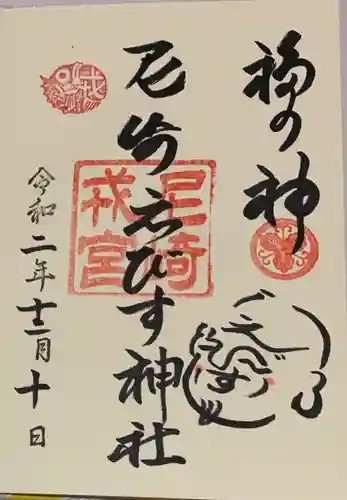 福の神
尼崎えびす神社
尼崎
戎宮
令和二年十二月十日